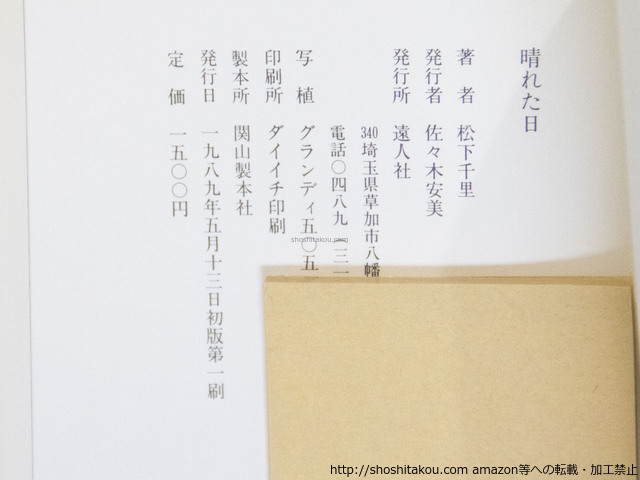 晴れた日
著者 松下千里
発行者 佐々木安美
発行所 遠人社
340埼玉県草加市八幡
電話〇四八九
写植 グランディ五〇五
印刷所 ダイイチ印刷
製本所 関山製本社
発行日 一九八九年五月十三日初版第一刷
定価 一五〇〇円
shoshitakou.com
http://shoshitakou.com amazon等への転載・加工禁止